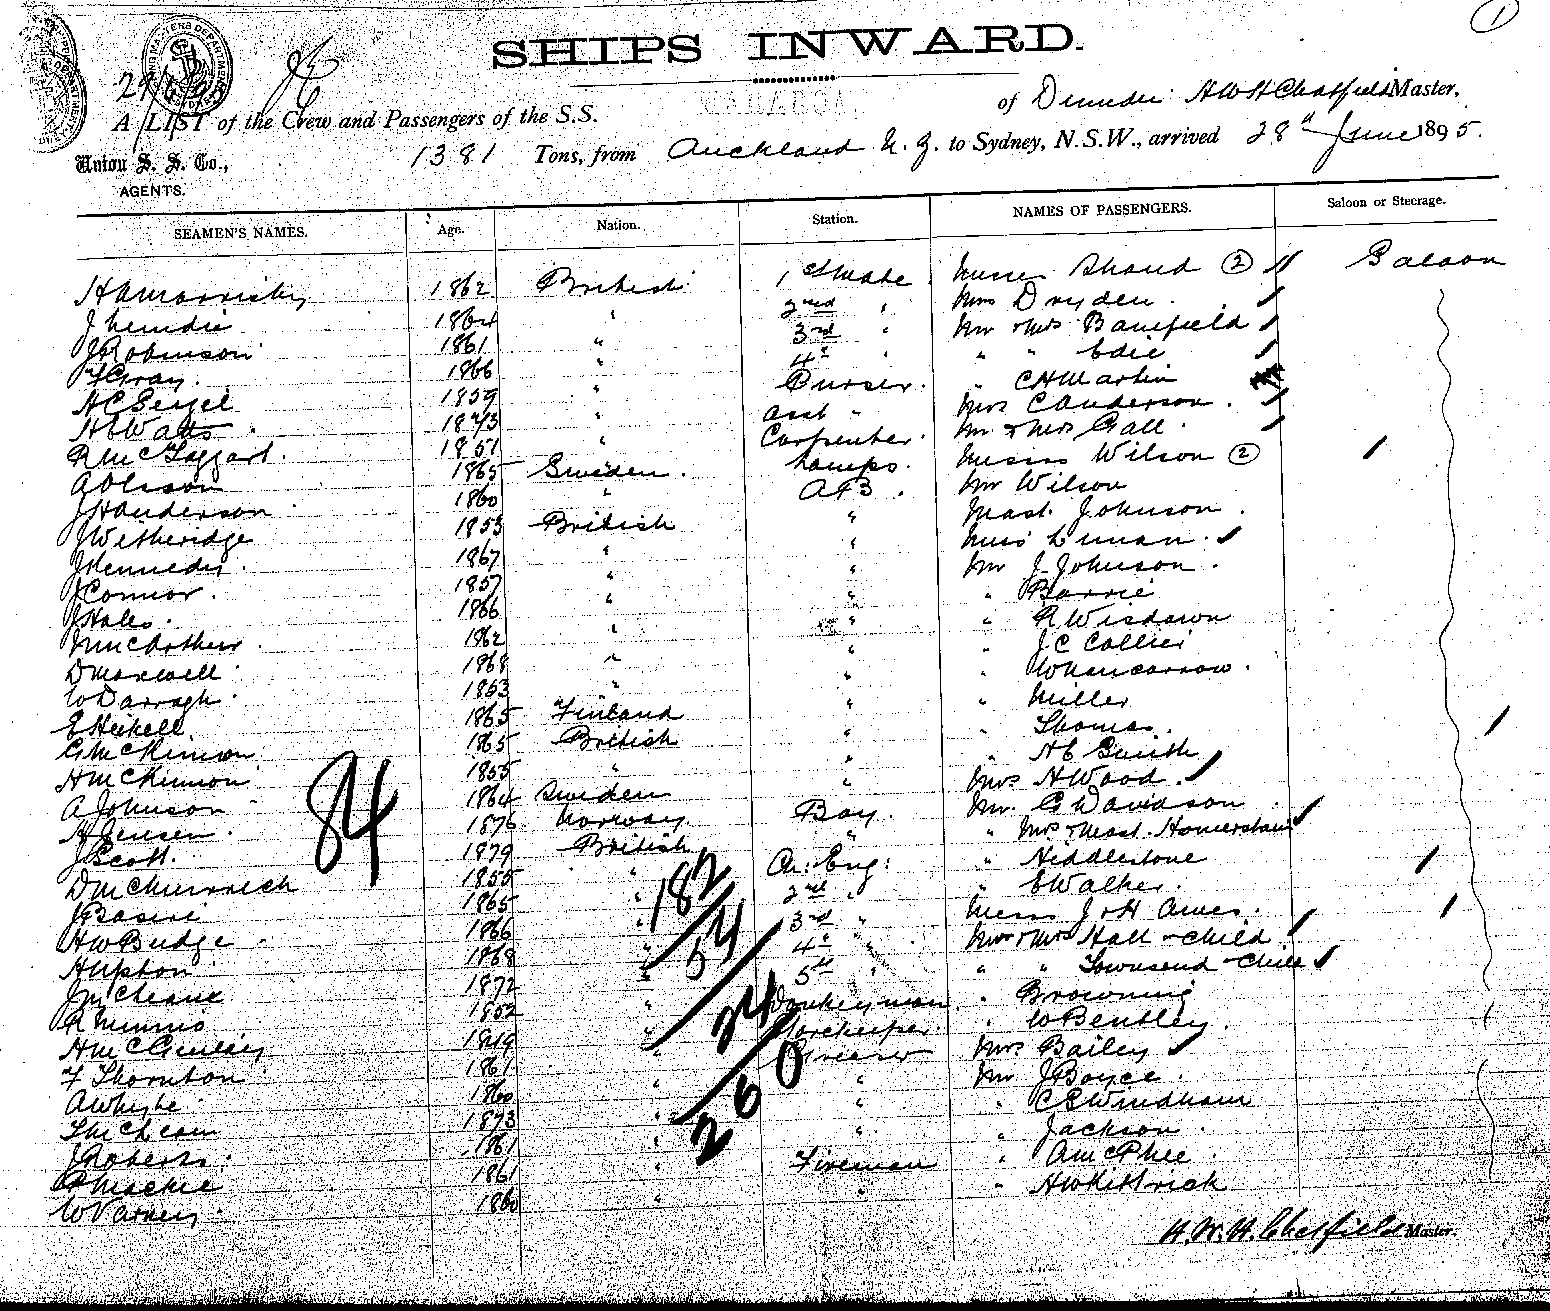 1
SHIPS INWARD.
29/6/95
A LIST of the Crew and Passengers of the S.S. of Dunedin H W H Chatfield Master,
Union S. S. Co., 1381 Tons, from Auckland N. Z. to Sydney, N.S.W., arrived 28th June 1895.
AGENTS.
SEAMEN'S NAMES. Age. Nation. Station. NAMES OF PASSENGERS. Saloon or Steerage.
1862 British 1st Mate Misses Shand 2 Saloon
1864 " 2nd " Mrs Dryden
J Robinson 1861 " 3rd " Mr & Mrs Banfield
F Gray. 1866 " 4th " " " Edie
1859 " Purser. " C H Martin
H E Watts 1873 " Asst " Mrs C Anderson.
R McTaggart. 1851 " Carpenter. Mr & Mrs Gall.
A Olsson 1865 Sweden. Lamps. Misses Wilson 2
J H Anderson 1860 " A B. Mr Wilson
J Wetheridge 1853 British " Mast. Johnson.
J Kennedy. 1867 " " Miss
J Connor. 1857 " " Mr J. Johnson.
J Hales. 1866 " " " Barrie
J McArthur. 1862 " " " R Wisdown
D Maxwell 1868 " " " J C Collier
W Darragh 1863 " " " W Nancarrow.
E Heikell. 1865 Finland " " Miller
G McKinnon 1865 British " " Thomas.
H McKinnon 1855 " " " H E Smith
A Johnson 1864 Sweden " Mrs H Wood.
H Jensen. 1876 Norway. Boy. Mr. G Davidson
J Scott. 1879 British " " Mrs & Mast. Homersham
1855 " Ch: Eng: " Hiddlestone
1865 " 2nd " " E Walker.
H W Budge 1866 " 3rd " Messrs J & H Ames.
H Upton 1868 " 4th " Mr & Mrs Hall & Child
J McLean 1872 " 5th " " " Townsend & Child
R 1852 " Donkeyman " Browning
1849 " Storekeeper. " W Bentley.
F Thornton 1861 " Greaser Mrs Bailey
A Whyte 1860 " " Mr J Boyce.
1873 " " " C E Windham
J Roberts. 1861 " " " Jackson
1861 " Fireman " A McPhee
W Varney 1860 " " " H W Kittrick
84
182
54
24
260
H. W. H. Chatfield Master.